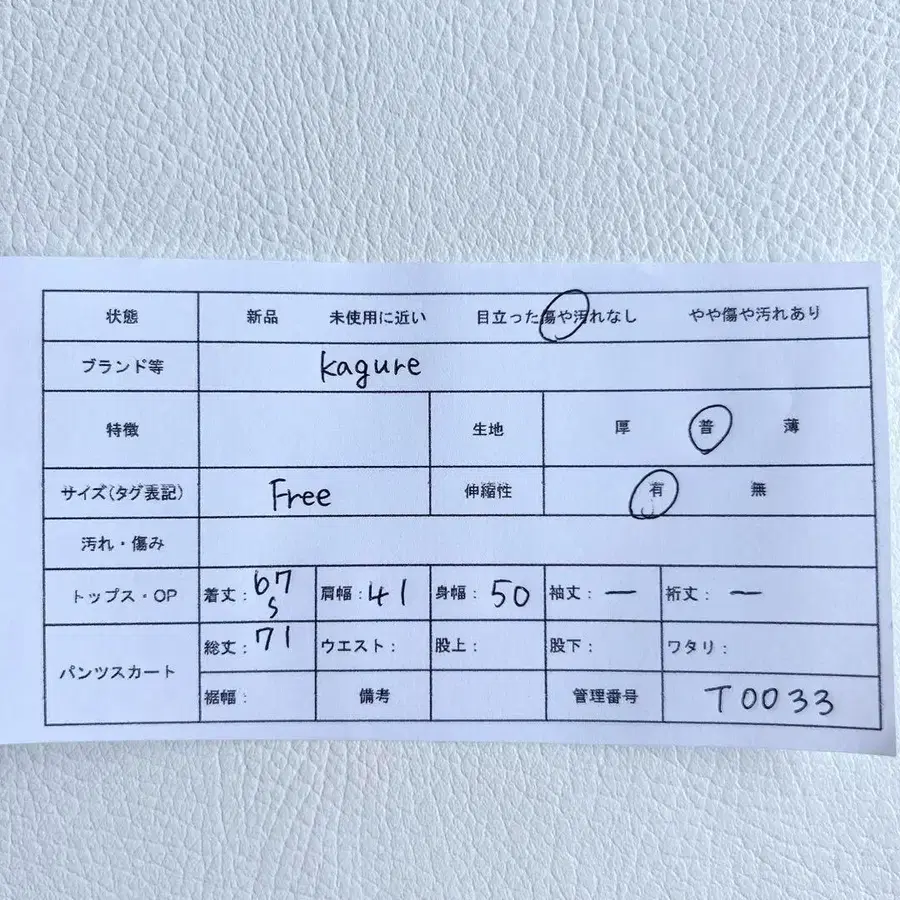 状態 新品 未使用に近い 目立った傷や汚れなし やや傷や汚れあり
ブランド等 kagure
特徴 生地 厚 普 薄
サイズ(タグ表記) Free 伸縮性 有 無
汚れ・傷み
トップス・OP 着丈：67 肩幅：41 身幅：50 袖丈：ー 裄丈：ー
S
パンツスカート 総丈：71 ウエスト： 股上： 股下： ワタリ：
裾幅： 備考 管理番号 T0033